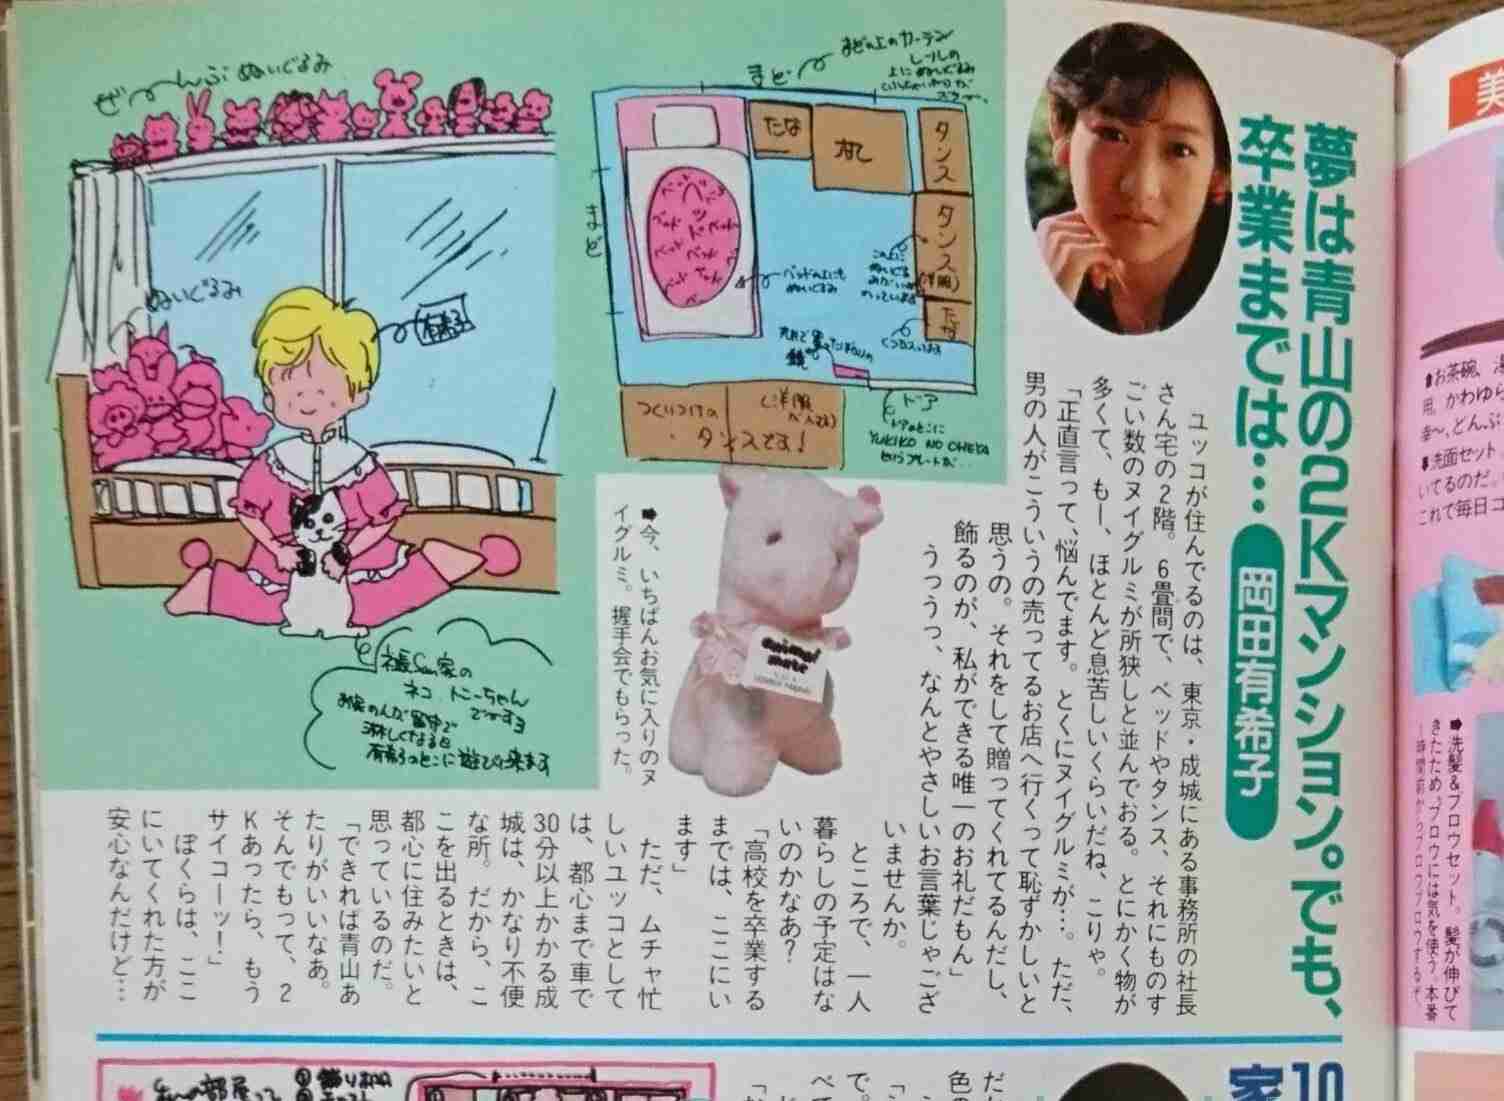 夢は青山の2Kマンション。でも、
卒業までは…
岡田有希子
ユッコが住んでるのは、東京・成城にある事務所の社長
さん宅の2階。6畳間で、ベッドやタンス、それにものす
ごい数のヌイグルミが所狭しと並んでおる。とにかく物が
多くて、もー、ほとんど息苦しいくらいだね、こりゃ。
「正直言って、悩んでます。とくにヌイグルミが…。ただ、
男の人がこういうの売ってるお店へ行くって恥ずかしいと
思うの。それをして贈ってくれてるんだし、
飾るのが、私ができる唯一のお礼だもん」
うっうっ、なんとやさしいお言葉じゃござ
いませんか。
ところで、一人
暮らしの予定はな
いのかなあ？
「高校を卒業する
までは、ここにい
ます」
ただ、ムチャ忙
しいユッコとして
は、都心まで車で
30分以上かかる成
城は、かなり不便
な所。だから、こ
こを出るときは、
都心に住みたいと
思っているのだ。
「できれば青山あ
たりがいいなあ。
そんでもって、2
Kあったら、もう
サイコーッ！」
ぼくらは、ここ
にいてくれた方が
安心なんだけど…
今、いちばんお気に入りのヌ
イグルミ。握手会でもらった。
animal
mate
ぜーんぶぬいぐるみ
ぬいぐるみ
有希子
社長San家の
ネコ、トニーちゃん
でーすョ
お家の人が留守で
淋しくなると
有希子のとこに遊びに来ます
まど
まどの上のカーテン
まど
たな
タンス
タンス
(洋服)
たな
ベッド
ベッドの上にも
ぬいぐるみ
鏡
つくりつけの
タンスです！
ドア
ドアのとこに
YUKIKO NO OHEYA
というプレートが…
美
お茶碗、
用。かわゆ
どんぶ
洗面セット
いてるのだ。
これで毎日
洗髪＆ブロウセット。髪が伸びて
きたため、ブロウには気を使う。本番
10
家
私の部屋って
①飾り棚